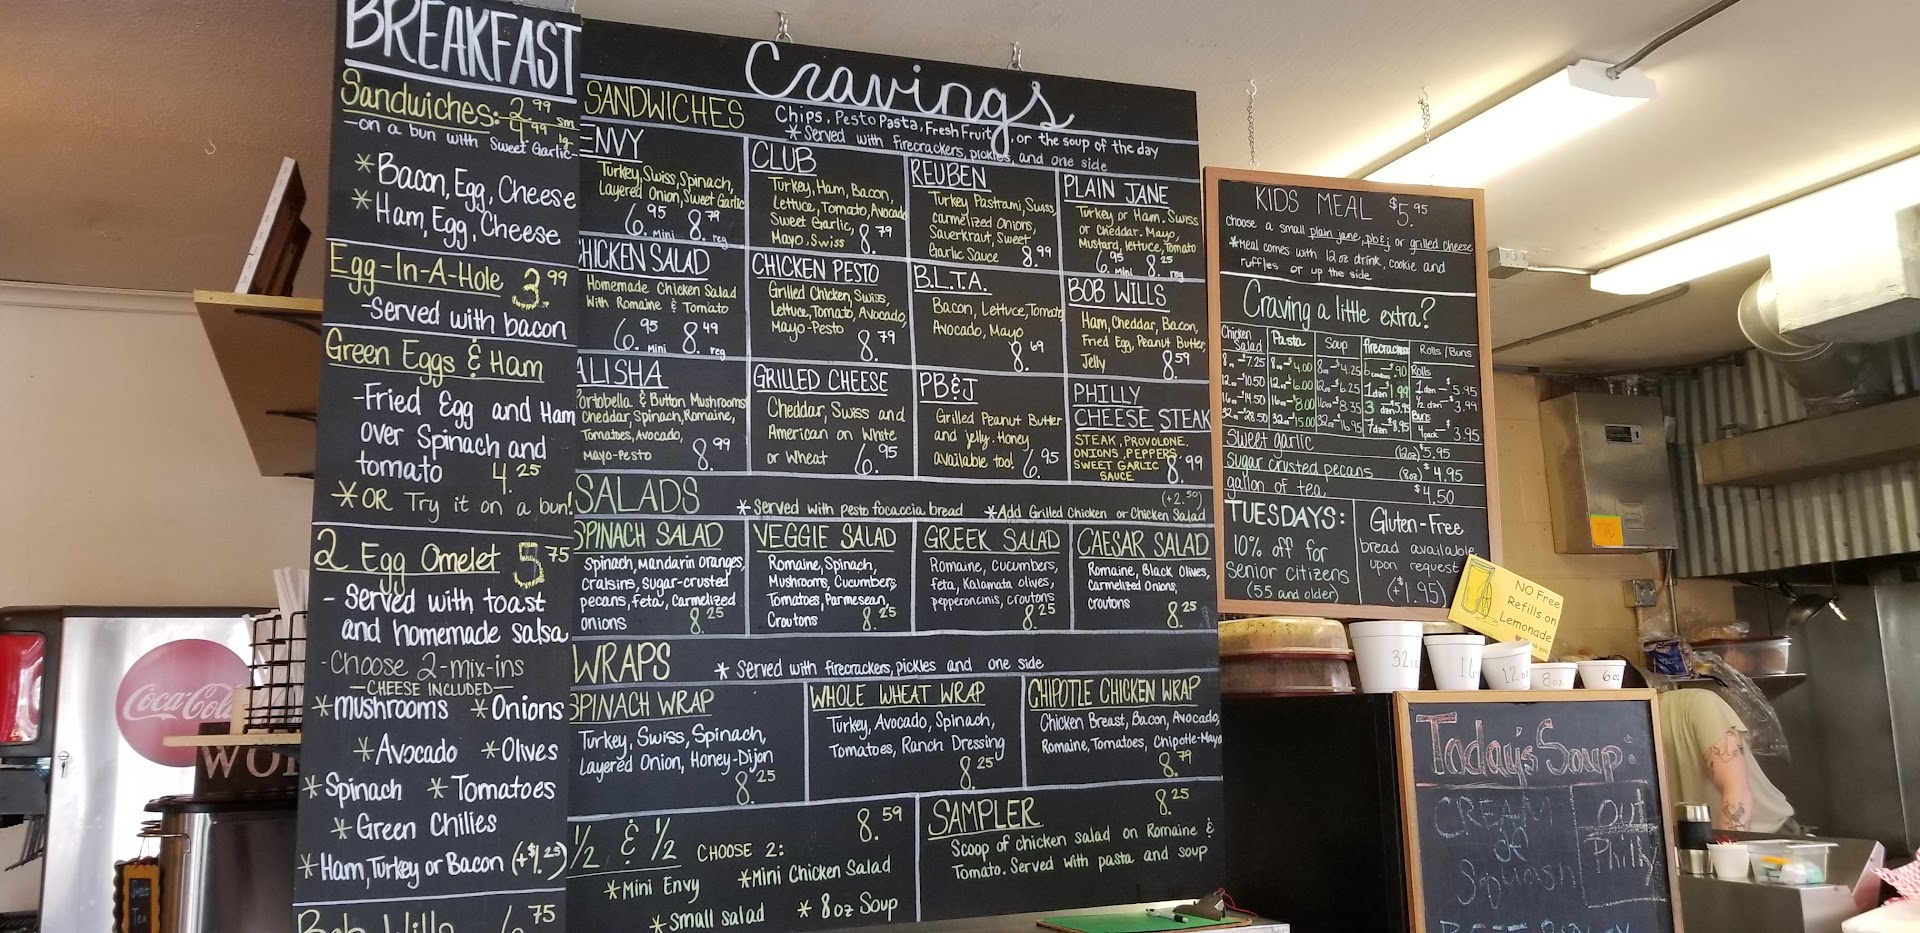 BREAKFAST
Sandwiches: 2.99 sm
4.99 lg
-on a bun with Sweet Garlic-
* Bacon, Egg, Cheese
* Ham, Egg, Cheese
Egg-In-A-Hole 3.99
-Served with bacon
Green Eggs & Ham
-Fried Egg and Ham
over Spinach and
tomato 4.25
* OR Try it on a bun!
2 Egg Omelet 5.75
- Served with toast
and homemade salsa
-Choose 2-mix-ins
-CHEESE INCLUDED-
* mushrooms * Onions
* Avocado * Olives
* Spinach * Tomatoes
* Green Chilies
* Ham, Turkey or Bacon (+$1.25)
Bob Wills 6.75
Cravings
SANDWICHES
Chips, Pesto Pasta, Fresh Fruit, or the soup of the day
* Served with firecrackers, pickles, and one side
ENVY
Turkey, Swiss, Spinach,
Layered Onion, Sweet Garlic
6.95 mini 8.79 reg
CLUB
Turkey, Ham, Bacon,
Lettuce, Tomato, Avocado
Sweet Garlic,
Mayo, Swiss 8.79
REUBEN
Turkey Pastrami, Swiss,
carmelized onions,
Sauerkraut, Sweet
Garlic Sauce 8.99
PLAIN JANE
Turkey or Ham. Swiss
or Cheddar. Mayo,
Mustard, lettuce, Tomato
6.95 mini 8.25 reg
CHICKEN SALAD
Homemade Chicken Salad
With Romaine & Tomato
6.95 mini 8.49 reg
CHICKEN PESTO
Grilled Chicken, Swiss,
Lettuce, Tomato, Avocado,
Mayo-Pesto 8.79
B.L.T.A.
Bacon, Lettuce, Tomato
Avocado, Mayo
8.69
BOB WILLS
Ham, Cheddar, Bacon,
Fried Egg, Peanut Butter,
Jelly 8.59
ALISHA
Portobella & Button Mushrooms
Cheddar, Spinach, Romaine,
Tomatoes, Avocado,
Mayo-Pesto 8.99
GRILLED CHEESE
Cheddar, Swiss and
American on White
or Wheat 6.95
PB&J
Grilled Peanut Butter
and jelly. Honey
available too! 6.95
PHILLY
CHEESE STEAK
STEAK, PROVOLONE,
ONIONS, PEPPERS,
SWEET GARLIC
SAUCE 8.99
SALADS
* Served with pesto focaccia bread * Add Grilled Chicken or Chicken Salad (+2.50)
SPINACH SALAD
Spinach, Mandarin oranges,
craisins, sugar-crusted
pecans, feta, Carmelized
onions 8.25
VEGGIE SALAD
Romaine, Spinach,
Mushrooms, Cucumbers
Tomatoes, Parmesean,
Croutons 8.25
GREEK SALAD
Romaine, Cucumbers,
feta, Kalamata olives,
pepperoncinis, croutons
8.25
CAESAR SALAD
Romaine, Black Olives,
Carmelized Onions,
croutons
8.25
WRAPS * Served with firecrackers, pickles and one side
SPINACH WRAP
Turkey, Swiss, Spinach,
Layered Onion, Honey-Dijon
8.25
WHOLE WHEAT WRAP
Turkey, Avocado, Spinach,
Tomatoes, Ranch Dressing
8.25
CHIPOTLE CHICKEN WRAP
Chicken Breast, Bacon, Avocado,
Romaine, Tomatoes, Chipotle-Mayo
8.79
1/2 & 1/2 CHOOSE 2: 8.59
* Mini Envy * Mini Chicken Salad
* Small salad * 8oz Soup
SAMPLER 8.25
Scoop of chicken salad on Romaine &
Tomato. Served with pasta and soup
KIDS MEAL $5.95
Choose a small plain jane, pb&j or grilled cheese
* Meal comes with 12 oz drink, cookie and
ruffles or up the side
Craving a little extra?
Chicken Salad Pasta Soup firecrackers Rolls/Buns
8oz-$7.25 8oz-$4.00 8oz-$4.25
12oz-10.50 12oz-$6.00 12oz-$6.25
16oz-14.50 16oz-8.00 16oz-8.35
32oz-28.50 32oz-15.00 32oz-16.95
1 dzn-$1.99
3 dzn-5.95
7 dzn-$8.95
Rolls
1 dzn-$5.95
1/2 dzn-$3.99
Buns
4 pack-$3.95
Sweet garlic (12oz) $5.95
sugar crusted pecans (8oz) $4.95
gallon of tea $4.50
TUESDAYS:
10% off for
senior citizens
(55 and older)
Gluten-Free
bread available
upon request
(+1.95)
NO Free
Refills on
Lemonade
32oz
16
12oz
8oz
6oz
Today's Soup:
CREAM
of
Squash
OUT
Philly
Coca-Cola